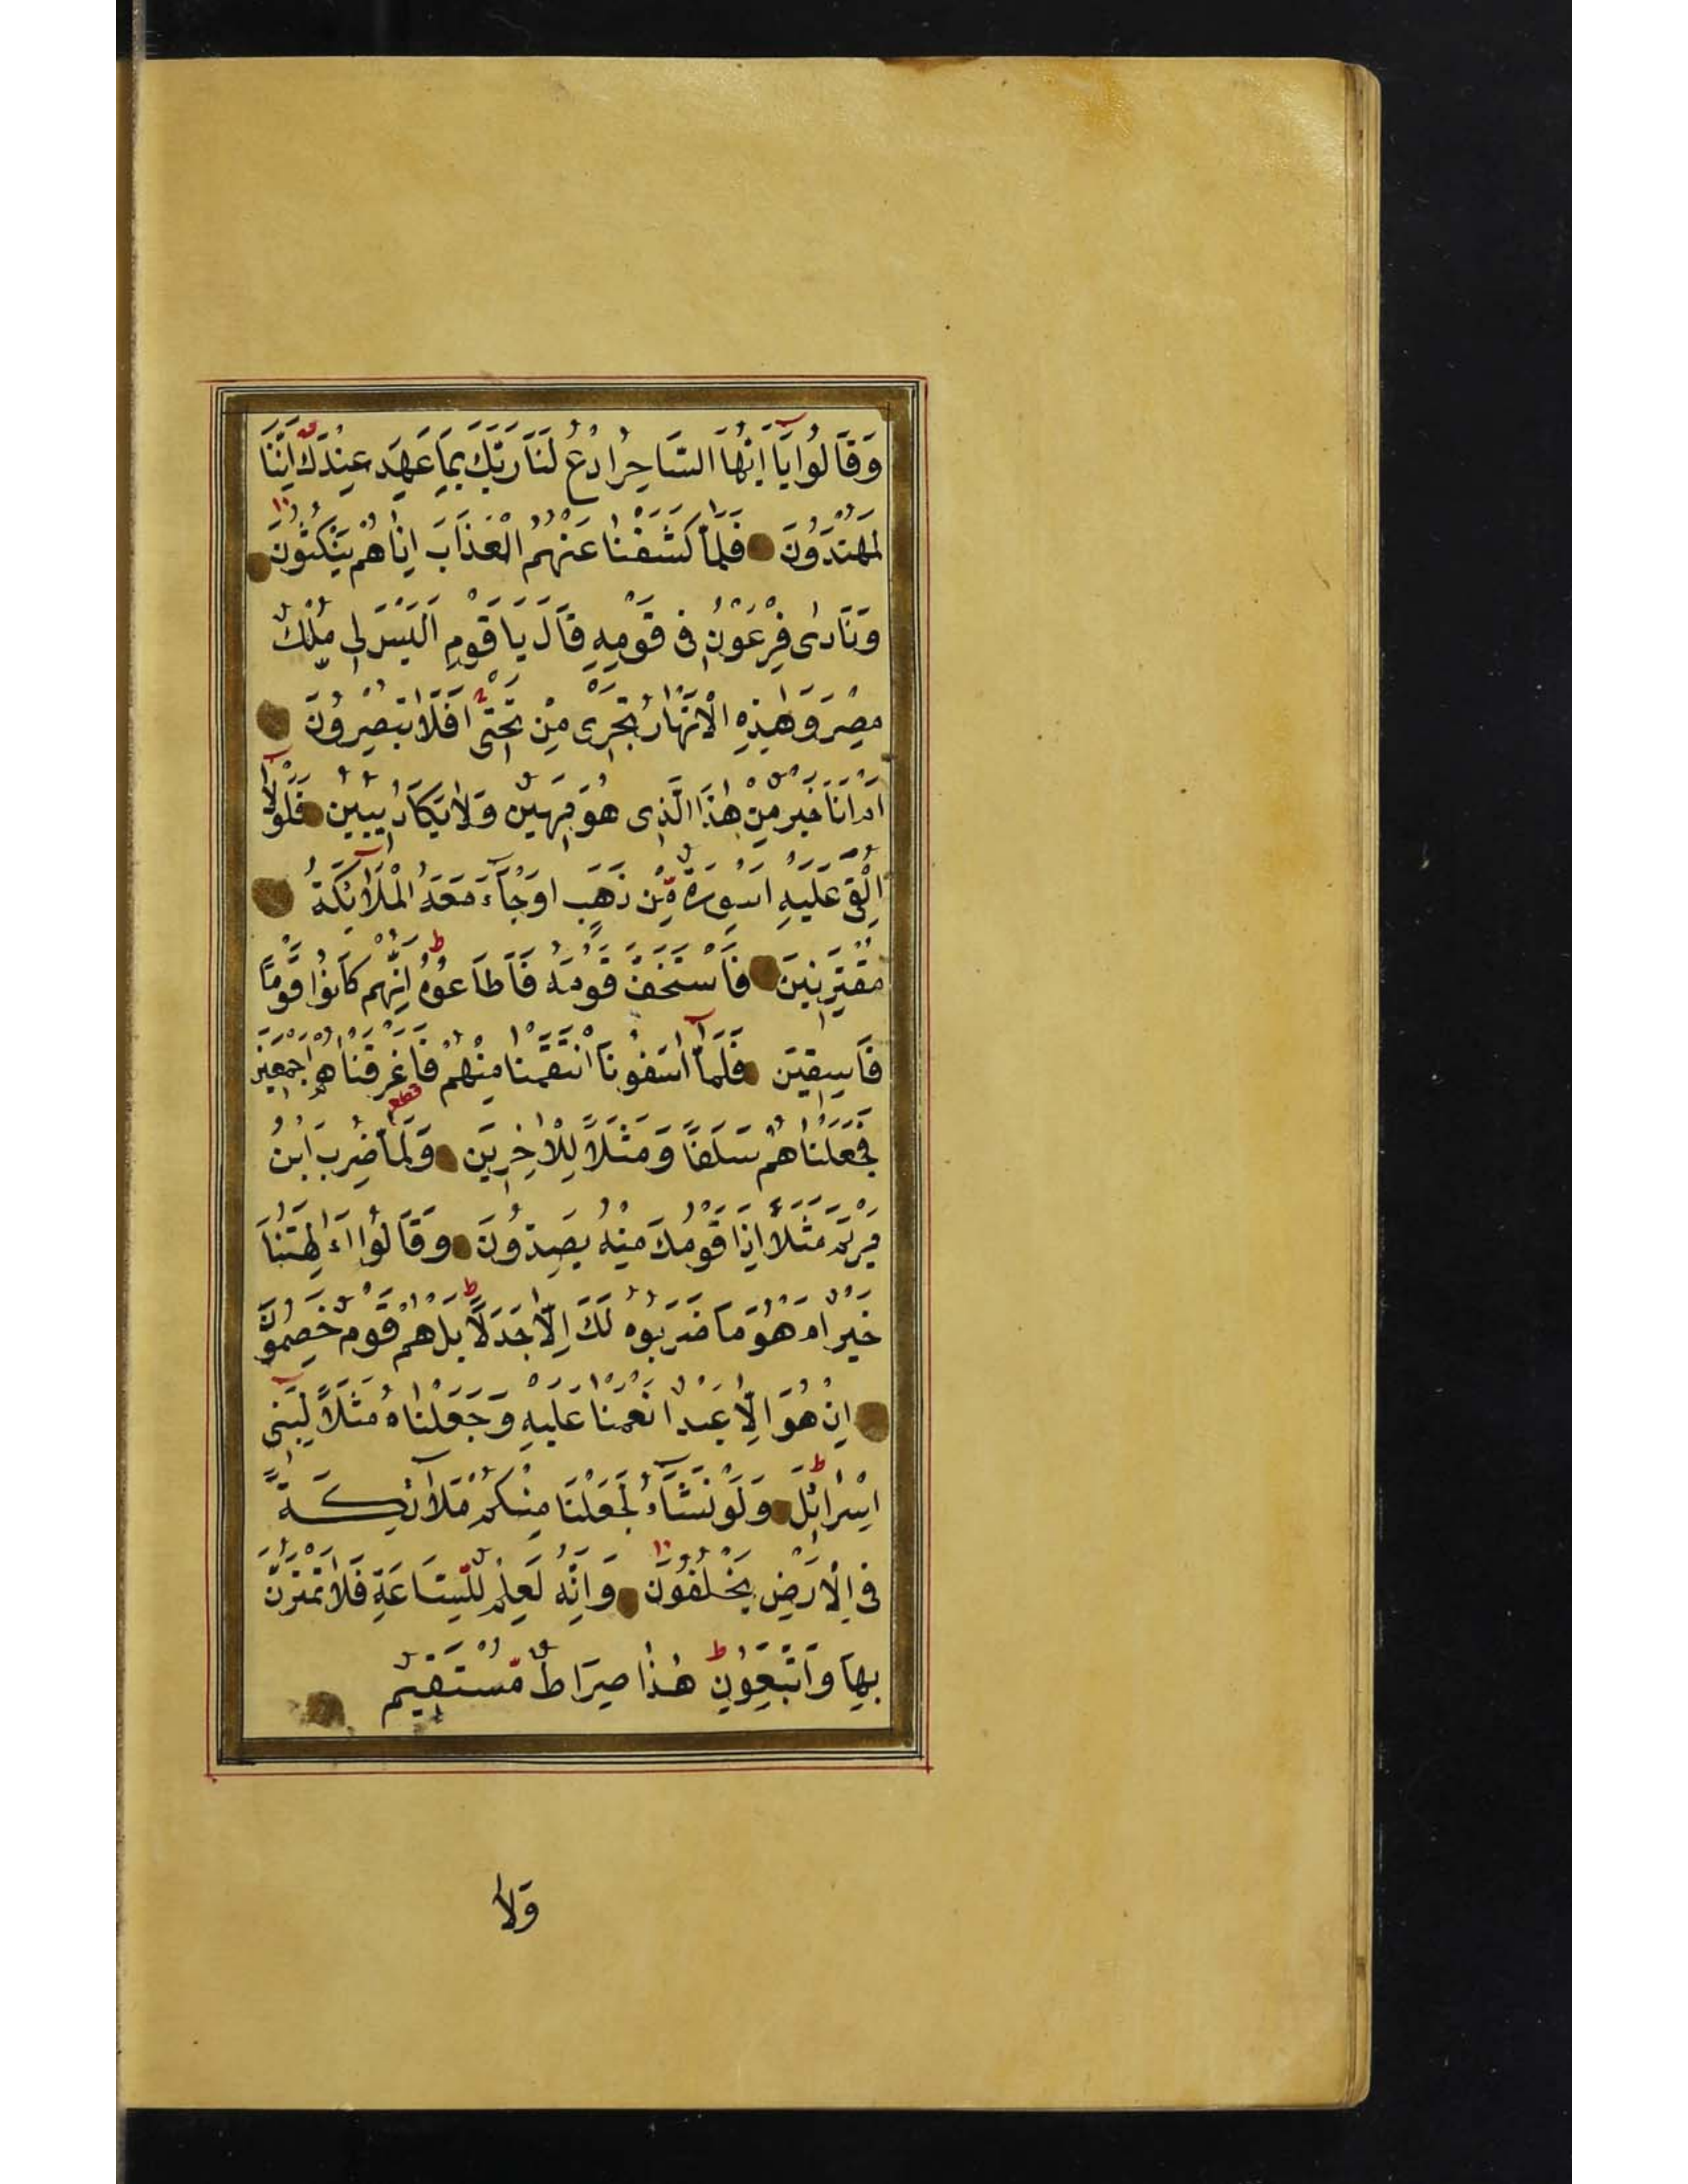 وَقَالُوا يَا اَيُّهَا السَّاحِرُ ادْعُ لَنَا رَبَّكَ بِمَا عَهِدَ عِنْدَكَ اِنَّنَا
لَمُهْتَدُونَ فَلَمَّا كَشَفْنَا عَنْهُمُ الْعَذَابَ اِذَا هُمْ يَنْكُثُونَ
وَنَادٰى فِرْعَوْنُ فِى قَوْمِهِ قَالَ يَا قَوْمِ اَلَيْسَ لِى مُلْكُ
مِصْرَ وَهٰذِهِ الْاَنْهَارُ تَجْرِى مِنْ تَحْتِى اَفَلَا تُبْصِرُونَ
اَمْ اَنَا خَيْرٌ مِنْ هٰذَا الَّذِى هُوَ مَهِينٌ وَلَا يَكَادُ يُبِينُ فَلَوْلَا
اُلْقِىَ عَلَيْهِ اَسْوِرَةٌ مِّنْ ذَهَبٍ اَوْ جَآءَ مَعَهُ الْمَلَآئِكَةُ
مُقْتَرِنِينَ فَاسْتَخَفَّ قَوْمَهُ فَاَطَاعُوهُ اِنَّهُمْ كَانُوا قَوْمًا
فَاسِقِينَ فَلَمَّآ اٰسَفُونَا انْتَقَمْنَا مِنْهُمْ فَاَغْرَقْنَاهُمْ اَجْمَعِينَ
فَجَعَلْنَاهُمْ سَلَفًا وَمَثَلًا لِلْاٰخِرِينَ وَلَمَّا ضُرِبَ ابْنُ
مَرْيَمَ مَثَلًا اِذَا قَوْمُكَ مِنْهُ يَصِدُّونَ وَقَالُوا ءَاٰلِهَتُنَا
خَيْرٌ اَمْ هُوَ مَا ضَرَبُوهُ لَكَ اِلَّا جَدَلًا بَلْ هُمْ قَوْمٌ خَصِمُونَ
اِنْ هُوَ اِلَّا عَبْدٌ اَنْعَمْنَا عَلَيْهِ وَجَعَلْنَاهُ مَثَلًا لِبَنِى
اِسْرَائِلَ وَلَوْ نَشَآءُ لَجَعَلْنَا مِنْكُمْ مَلَآئِكَةً
فِى الْاَرْضِ يَخْلُفُونَ وَاِنَّهُ لَعِلْمٌ لِّلسَّاعَةِ فَلَا تَمْتَرُنَّ
بِهَا وَاتَّبِعُونِ هٰذَا صِرَاطٌ مُّسْتَقِيمٌ
وَلَا